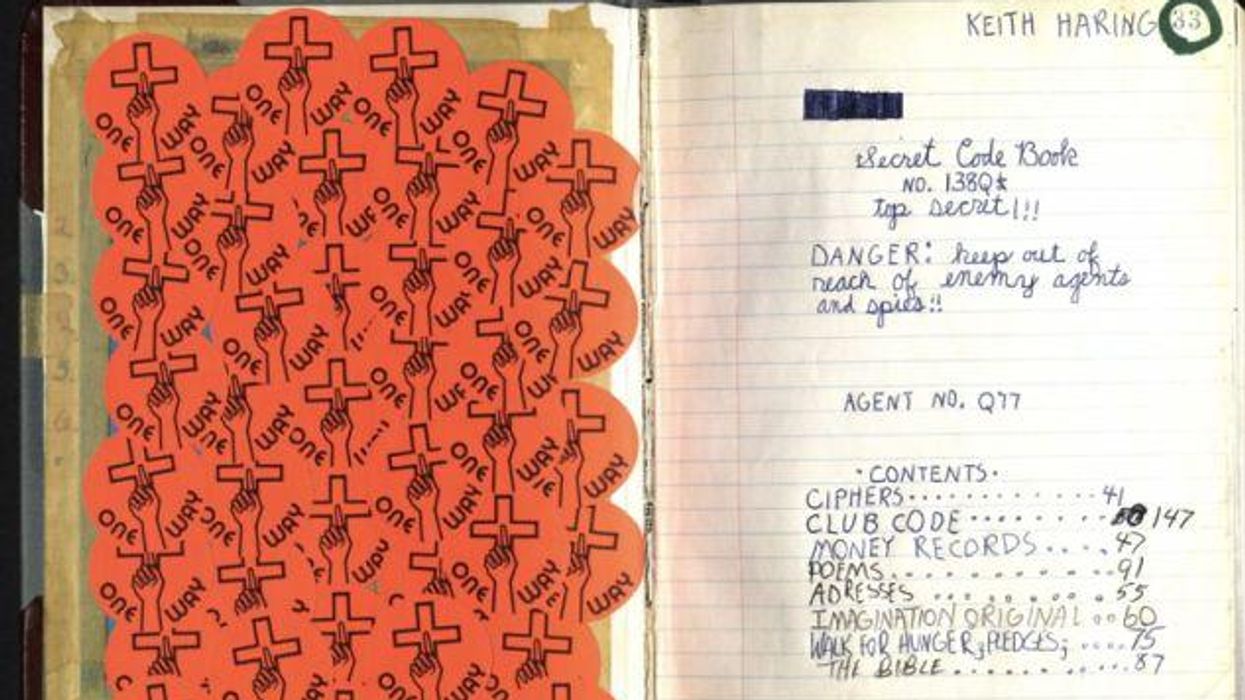 ONE WAY ONE WAY ONE WAY ONE WAY
ONE WAY ONE WAY ONE WAY ONE WAY
ONE WAY ONE WAY ONE WAY
ONE WAY ONE WAY ONE WAY
ONE WAY ONE WAY ONE WAY
ONE WAY ONE WAY ONE WAY
ONE WAY ONE WAY ONE WAY
KEITH HARING 33
Secret Code Book
NO. 138Q*
top secret!!!
DANGER: keep out of
reach of enemy agents
and spies!!
AGENT NO. Q77
·CONTENTS·
CIPHERS............41
CLUB CODE........147
MONEY RECORDS....47
POEMS..........91
ADRESSES.........55
IMAGINATION ORIGINAL..60
WALK FOR HUNGER, PLEDGES;....75
THE BIBLE..........87